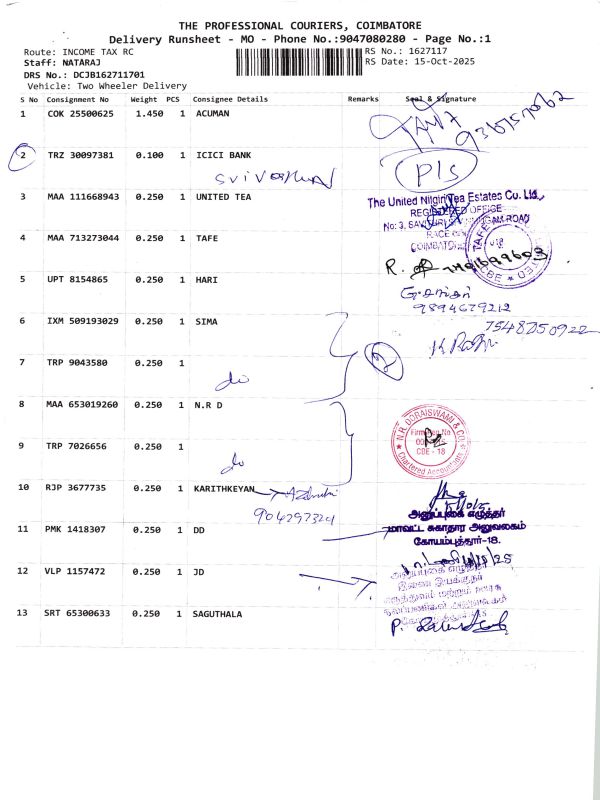 THE PROFESSIONAL COURIERS, COIMBATORE
Delivery Runsheet - MO - Phone No.:9047080280 - Page No.:1
Route: INCOME TAX RC
RS No.: 1627117
Staff: NATARAJ
RS Date: 15-Oct-2025
DRS No.: DCJB162711701
Vehicle: Two Wheeler Delivery
S No Consignment No Weight PCS Consignee Details Remarks Seal & Signature
1 COK 25500625 1.450 1 ACUMAN
2 TRZ 30097381 0.100 1 ICICI BANK
P/s
3 MAA 111668943 0.250 1 UNITED TEA
The United Nilgiri Tea Estates Co. Ltd.,
REGISTERED OFFICE
No: 3,
RACE
COIMBATORE
4 MAA 713273044 0.250 1 TAFE
TAFE
CBE
5 UPT 8154865 0.250 1 HARI
9894679212
6 IXM 509193029 0.250 1 SIMA
7548750922
7 TRP 9043580 0.250 1
do
2
8 MAA 653019260 0.250 1 N.R D
N.R. DORAISWAMI & CO
Firm Reg No
CBE - 18
Chartered Accountants
9 TRP 7026656 0.250 1
do
10 RJP 3677735 0.250 1 KARITHKEYAN
9042973201
11 PMK 1418307 0.250 1 DD
அனுப்புகை எழுத்தர்
மாவட்ட சுகாதார அலுவலகம்
கோயம்புத்தூர்-18.
12 VLP 1157472 0.250 1 JD
13 SRT 65300633 0.250 1 SAGUTHALA